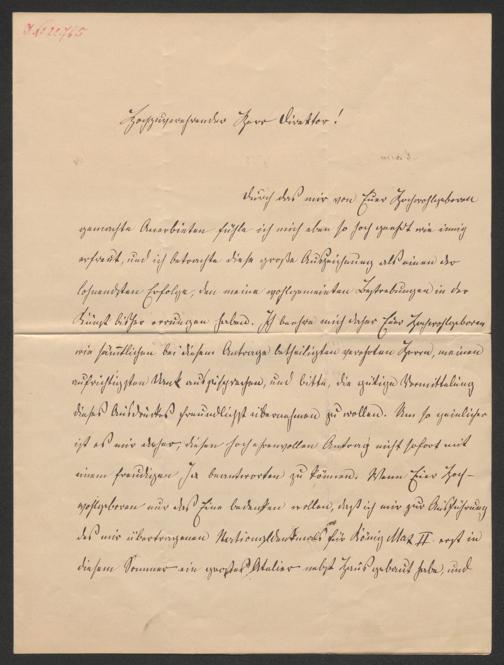 Hochzuverehrender Herr Direktor!
Durch das mir von Euer Hochwohlgeboren
gemachte Anerbieten fühle ich mich eben so hoch geehrt wie innig
erfreut, und ich betrachte diese große Auszeichnung als einen der
lohnendsten Erfolge, den meine wohlgemeinten Bestrebungen in der
Kunst bisher errungen haben. Ich beehre mich daher Euer Hochwohlgeboren
wie sämmtlichen bei diesem Antrage betheiligten verehrten Herren, meinen
aufrichtigsten Dank auszusprechen, und bitte, die gütige Vermittelung
dieses Ausdruckes freundlichst übernehmen zu wollen. Um so peinlicher
ist es mir daher, diesen hochehrenvollen Antrag nicht sofort mit
einem freudigen Ja beantworten zu können. Wenn Euer Hoch-
wohlgeboren nur das Eine bedenken wollen, daß ich mir zur Ausführung
des mir übertragenen Nationaldenkmals für König Max II erst in
diesem Sommer ein großes Atelier nebst Haus gebaut habe, und